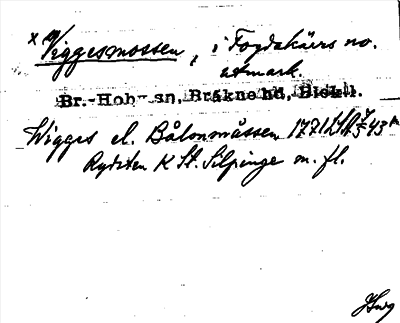 x Viggesmossen, i Fogdakärrs no.
utmark.
Br.-Hoby sn, Bräkne hd, Blek. l.
Wigges el. Bålonmåssen 1771 LSA
Rydsten K St. Silpinge m. fl.